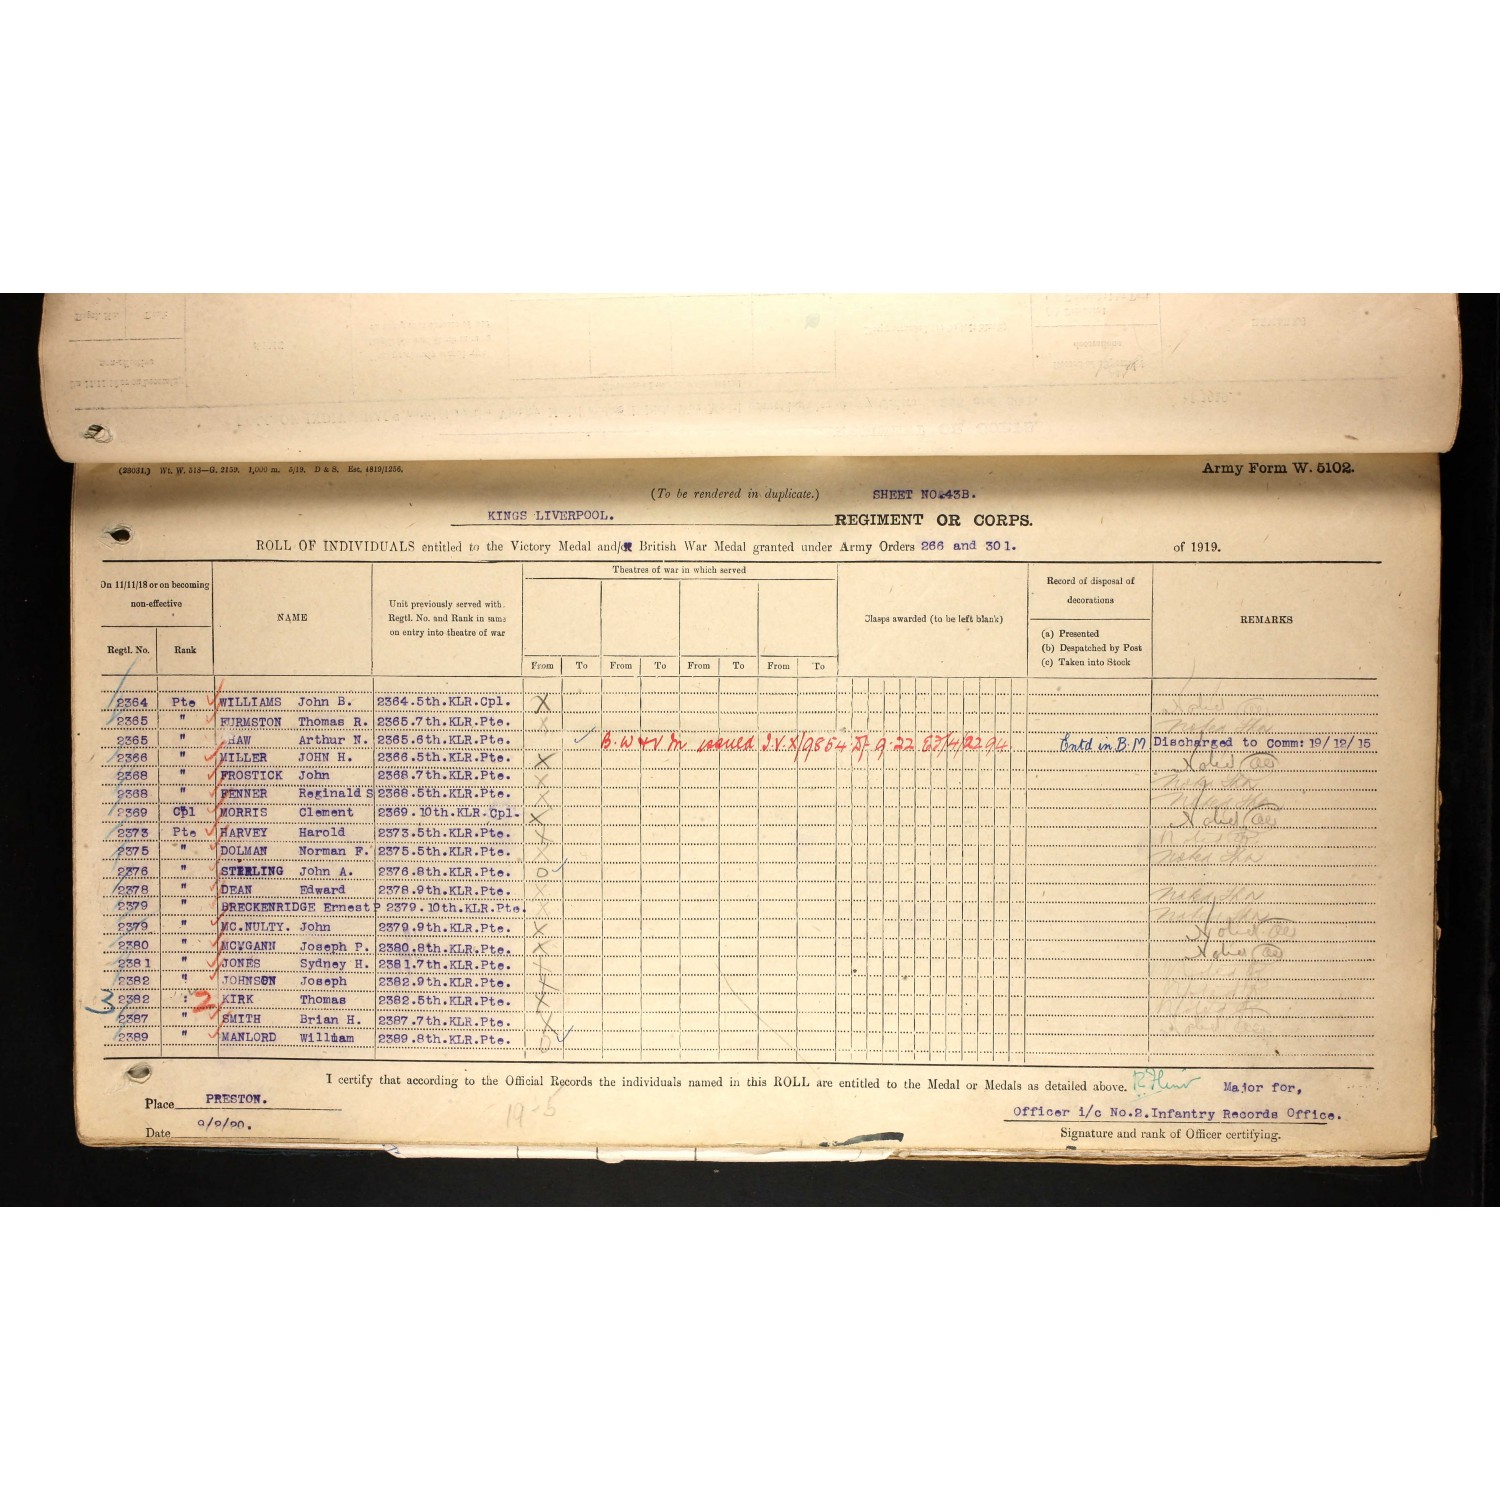 (23031.) Wt. W. 518—G. 2159. 1,000 m. 5/19. D & S. Est. 4819/1256.
Army Form W. 5102.
(To be rendered in duplicate.) SHEET NO.43B.
KINGS LIVERPOOL. REGIMENT OR CORPS.
ROLL OF INDIVIDUALS entitled to the Victory Medal and/or British War Medal granted under Army Orders 266 and 301. of 1919.
On 11/11/18 or on becoming non-effective
Regtl. No. Rank
NAME
Unit previously served with. Regtl. No. and Rank in same on entry into theatre of war
Theatres of war in which served
From To From To From To From To
Clasps awarded (to be left blank)
Record of disposal of decorations
(a) Presented
(b) Despatched by Post
(c) Taken into Stock
REMARKS
2364 Pte WILLIAMS John B. 2364.5th.KLR.Cpl. X
2365 " FURMSTON Thomas R. 2365.7th.KLR.Pte. X
2365 " HAW Arthur N. 2365.6th.KLR.Pte. B.W & V M issued Entd in B.M Discharged to Comm: 19/12/15
2366 " MILLER JOHN H. 2366.5th.KLR.Pte. X Noted
2368 " FROSTICK John 2368.7th.KLR.Pte. X
2368 " FENNER Reginald S 2368.5th.KLR.Pte. X
2369 Cpl MORRIS Clement 2369.10th.KLR.Cpl. X Noted
2373 Pte HARVEY Harold 2373.5th.KLR.Pte. X
2375 " DOLMAN Norman F. 2375.5th.KLR.Pte. X
2376 " STERLING John A. 2376.8th.KLR.Pte. O
2378 " DEAN Edward 2378.9th.KLR.Pte. X
2379 " BRECKENRIDGE Ernest P 2379.10th.KLR.Pte. X
2379 " MC.NULTY. John 2379.9th.KLR.Pte. X Noted
2380 " MCGANN Joseph P. 2380.8th.KLR.Pte. X Noted
2381 " JONES Sydney H. 2381.7th.KLR.Pte. X
2382 " JOHNSON Joseph 2382.9th.KLR.Pte. X
3 2382 : 2 KIRK Thomas 2382.5th.KLR.Pte. X
2387 " SMITH Brian H. 2387.7th.KLR.Pte. X
2389 " MANLORD William 2389.8th.KLR.Pte. O
I certify that according to the Official Records the individuals named in this ROLL are entitled to the Medal or Medals as detailed above. Major for,
Place PRESTON.
Officer i/c No.2.Infantry Records Office.
19-5
Date
Signature and rank of Officer certifying.